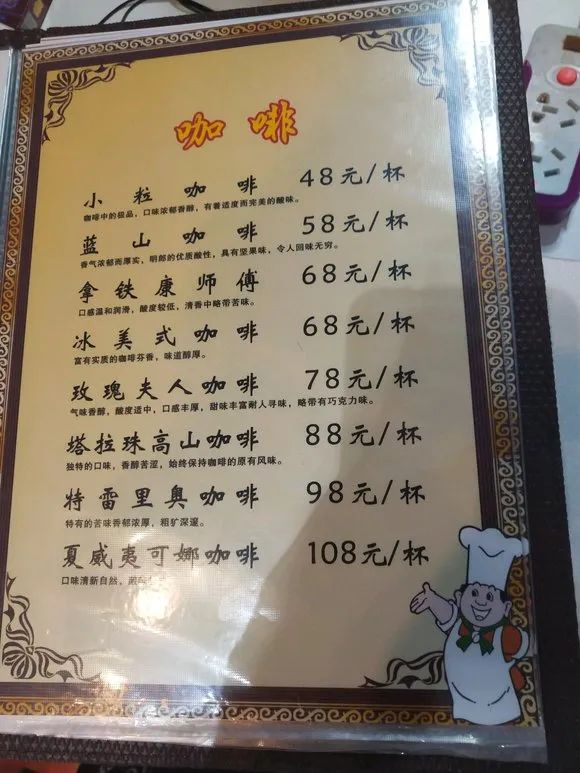 咖啡
小粒咖啡 48元/杯
咖啡中的极品，口味浓郁香醇，有着适度而完美的酸味。
蓝山咖啡 58元/杯
香气浓郁而厚实，明郎的优质酸性，具有坚果味，令人回味无穷。
拿铁康师傅 68元/杯
口感温和润滑，酸度较低，清香中略带苦味。
冰美式咖啡 68元/杯
富有实质的咖啡芬香，味道醇厚。
玫瑰夫人咖啡 78元/杯
气味香醇，酸度适中，口感丰厚，甜味丰富耐人寻味，略带有巧克力味。
塔拉珠高山咖啡 88元/杯
独特的口味，香醇苦涩，始终保持咖啡的原有风味。
特雷里奥咖啡 98元/杯
特有的苦味香郁浓厚，粗犷深邃。
夏威夷可娜咖啡 108元/杯
口味清新自然，